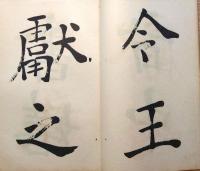 令王
獻之